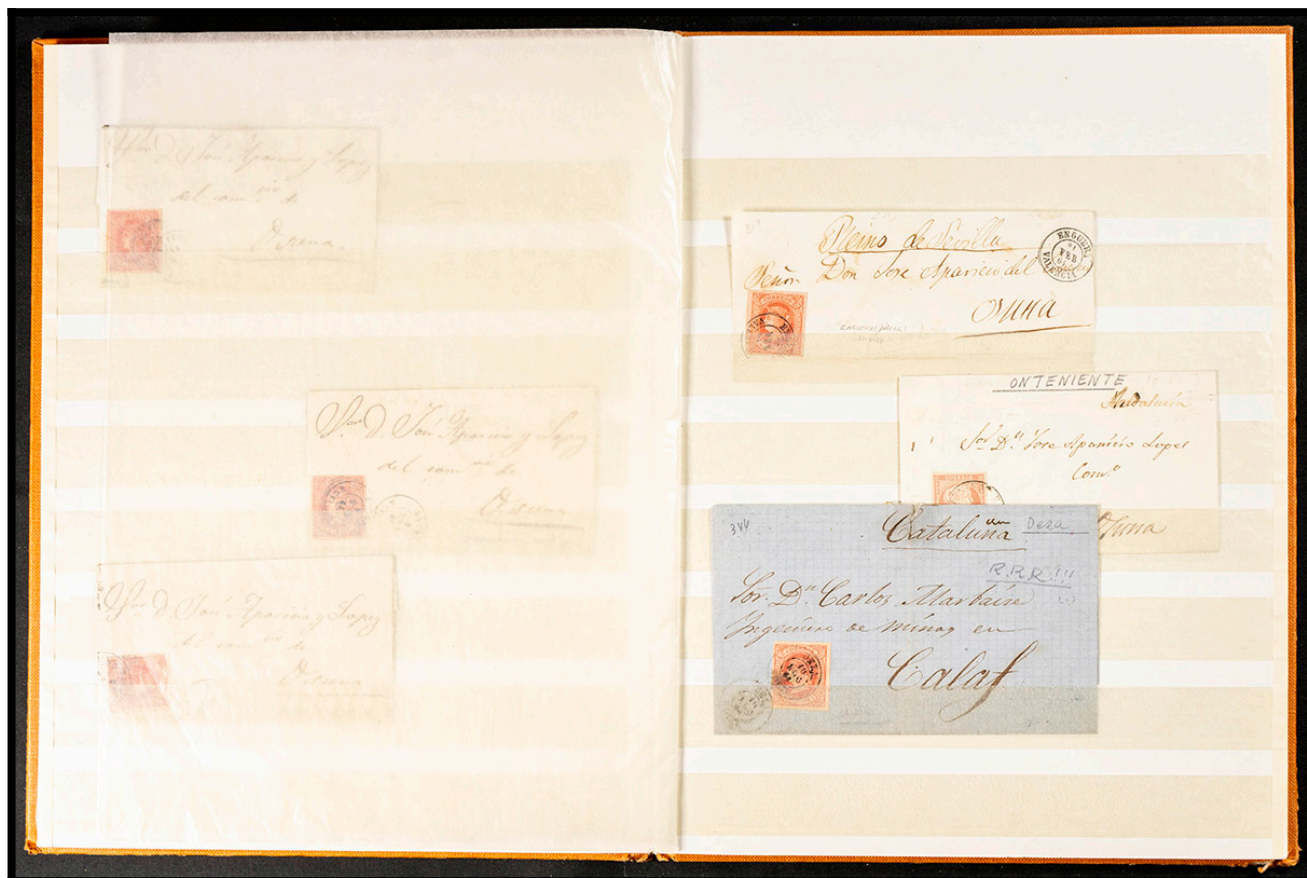 Sor D. José Aparicio y Lopez
del com.cio de
Osuna
Sor D. José Aparicio y Lopez
del com.cio de
Osuna
Sor D. José Aparicio y Lopez
del com.cio de
Osuna
Reino de Sevilla
Señor Don Jose Aparicio del
Osuna
ENGUERA
FEB
VALENCIA
ONTENIENTE
Andalucia
Sor Dn Jose Aparicio Lopez
Com.o
Osuna
344
Cataluña
Deza
R.R.R!!!
Sor. Dn Carlos Marbaise
Ingeniero de minas en
Calaf